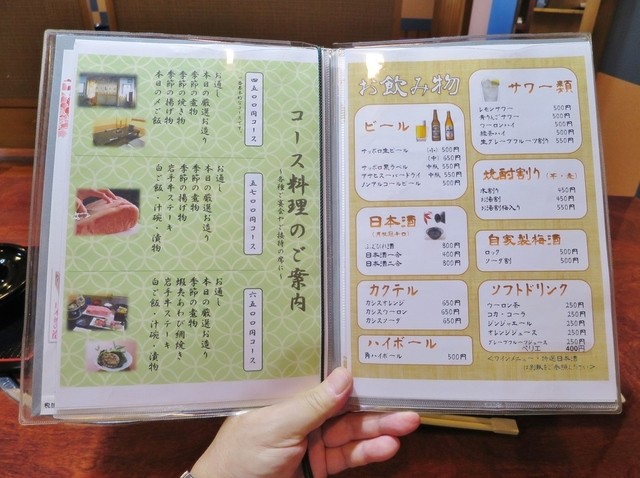 コース料理のご案内
～各種ご宴会や接待の席に～
四五〇〇円コース
お通し
本日の厳選お造り
季節の煮物
季節の焼き物
季節の揚げ物
本日の〆ご飯
五七〇〇円コース
お通し
本日の厳選お造り
季節の煮物
季節の揚げ物
岩手牛ステーキ
白ご飯・汁椀・漬物
六五〇〇円コース
お通し
本日の厳選お造り
季節の煮物
蝦夷あわび網焼き
岩手牛ステーキ
白ご飯・汁椀・漬物
お飲み物
ビール
サッポロ生ビール (小) 500円
(中) 650円
サッポロ黒ラベル 中瓶 550円
アサヒスーパードライ 中瓶 550円
ノンアルコールビール 500円
日本酒
ふしぎ酒 800円
日本酒一合 400円
日本酒二合 800円
カクテル
カシスオレンジ 650円
カシスウーロン 650円
カシスソーダ 650円
ハイボール
角ハイボール 500円
サワー類
レモンサワー 500円
青りんごサワー 500円
ウーロンハイ 500円
緑茶ハイ 500円
生グレープフルーツ割り 550円
焼酎割り (芋・麦)
水割り 450円
お湯割 450円
お湯割梅入り 550円
自家製梅酒
ロック 500円
ソーダ割 500円
ソフトドリンク
ウーロン茶 250円
コカ・コーラ 250円
ジンジャエール 250円
オレンジジュース 250円
グレープフルーツジュース 250円
ペリエ 400円
＜ワインメニュー・特選日本酒